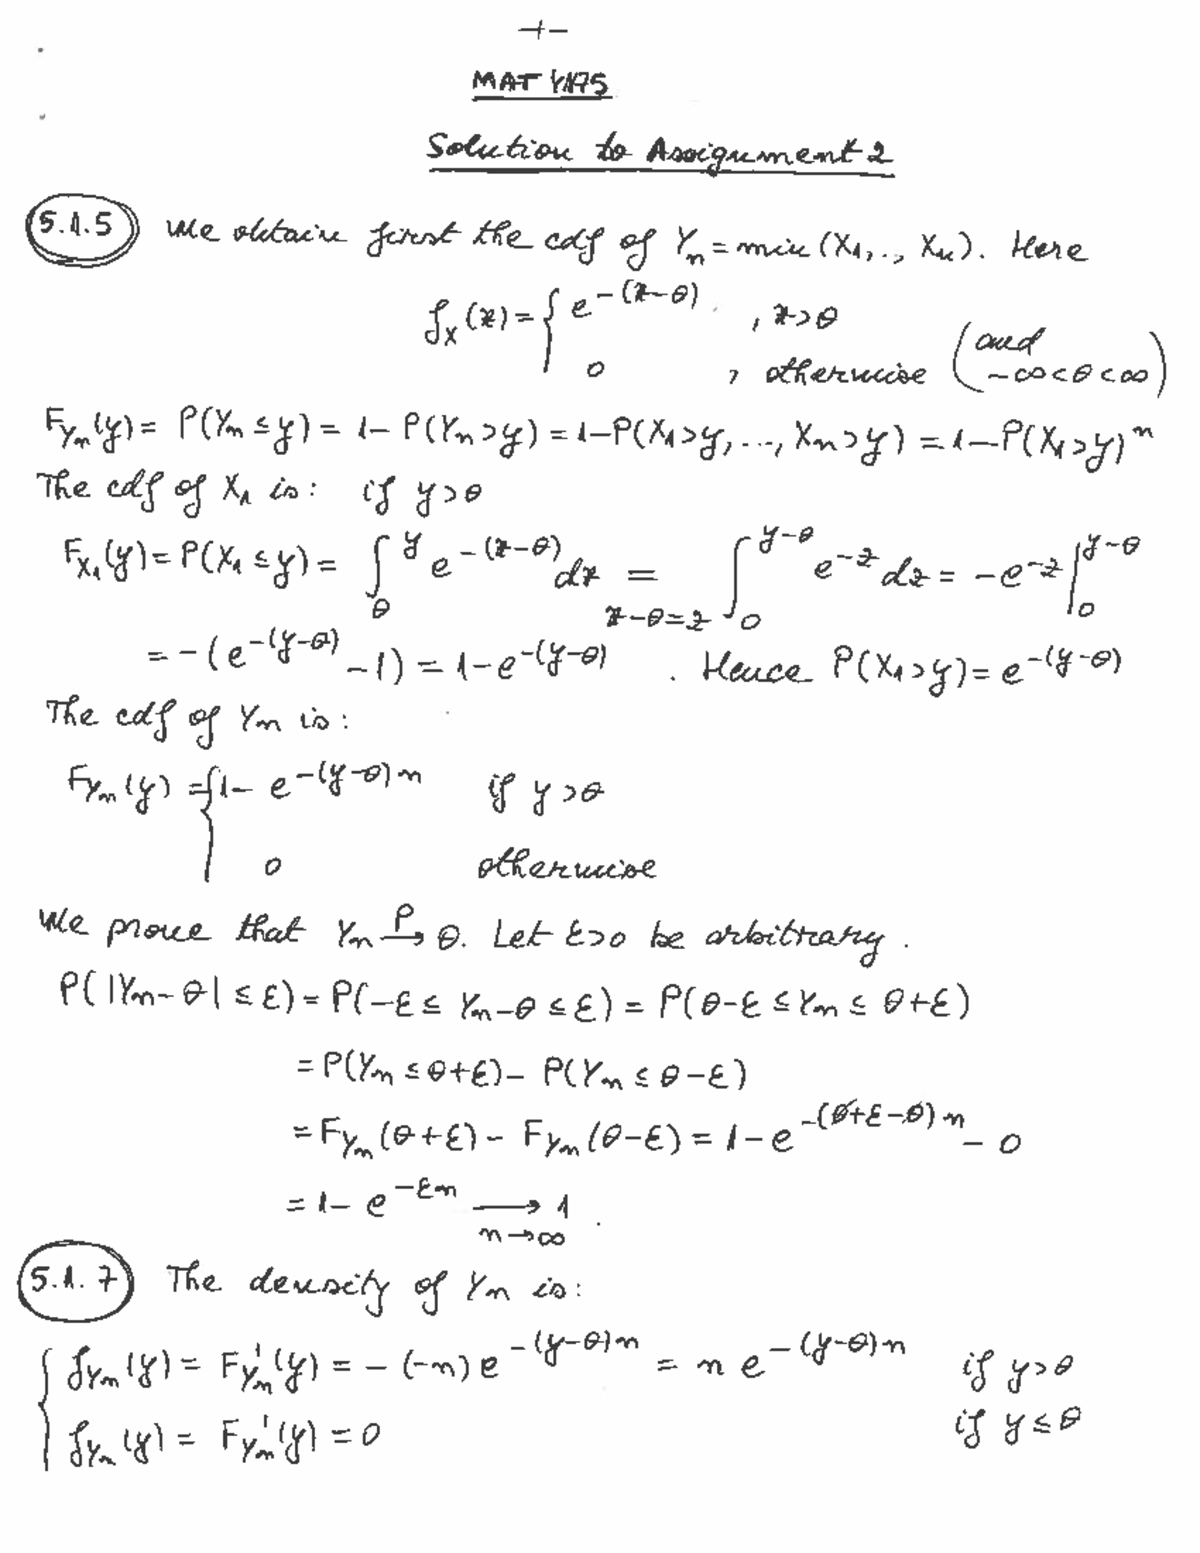 -1-
MAT 4175
Solution to Assignment 2
5.1.5 We obtain first the cdf of Yₙ = min (X₁,.., Xₙ). Here
f_X(x) = { e^{-(x-θ)} , x>θ
0 , otherwise (and -∞<θ<∞)
F_{Yₙ}(y) = P(Yₙ ≤ y) = 1- P(Yₙ>y) = 1-P(X₁>y, ..., Xₙ>y) = 1-P(X₁>y)ⁿ
The cdf of X₁ is: if y>θ
F_{X₁}(y) = P(X₁ ≤ y) = ∫_θ^y e^{-(x-θ)} dx =_{x-θ=z} ∫_0^{y-θ} e^{-z} dz = -e^{-z} |_0^{y-θ}
= -(e^{-(y-θ)} -1) = 1-e^{-(y-θ)} . Hence P(X₁>y) = e^{-(y-θ)}
The cdf of Yₙ is:
F_{Yₙ}(y) = { 1- e^{-(y-θ)n} if y>θ
0 otherwise
We prove that Yₙ →^P θ. Let ε>0 be arbitrary.
P(|Yₙ-θ| ≤ ε) = P(-ε ≤ Yₙ-θ ≤ ε) = P(θ-ε ≤ Yₙ ≤ θ+ε)
= P(Yₙ ≤ θ+ε) - P(Yₙ ≤ θ-ε)
= F_{Yₙ}(θ+ε) - F_{Yₙ}(θ-ε) = 1-e^{-(θ+ε-θ)n} - 0
= 1- e^{-εn} →_{n→∞} 1 .
5.1.7 The density of Yₙ is:
{ f_{Yₙ}(y) = F'_{Yₙ}(y) = -(-n)e^{-(y-θ)n} = n e^{-(y-θ)n} if y>θ
f_{Yₙ}(y) = F'_{Yₙ}(y) = 0 if y ≤ θ